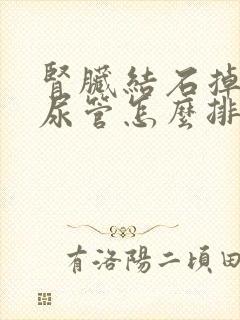 腎臟結石掉
尿管怎麼排
有洛陽二頃田